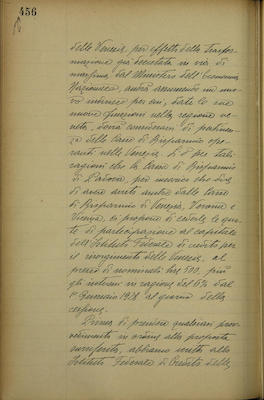 456
delle Venezie, per effetto della trasfor-
mazione già decretata in via di
massima dal Ministero dell'Economia
Nazionale, andrà assumendo un nuo-
vo indirizzo per cui, date le sue
nuove funzioni nella regione ve-
neta, dovrà considerarsi di pertinen-
za delle Casse di Risparmio ope-
ranti nelle Venezie. È per tali
ragioni che la Cassa di Risparmio
di Padova, per mezzo che
di avere avuto dalle Casse
di Risparmio di Venezia, Verona e
Vicenza, ci propone di cederle le quo-
te di partecipazione al capitale
dell'Istituto Federale di credito per
il risorgimento delle Venezie, al
prezzo di nominali lire 500, più
gli interessi in ragione del 6% dal
1° Gennaio 1928 al giorno della
cessione.
Prima di prendere qualsiasi prov-
vedimento in ordine alla proposta
surriferita, abbiamo scritto allo
Istituto Federale di Credito delle